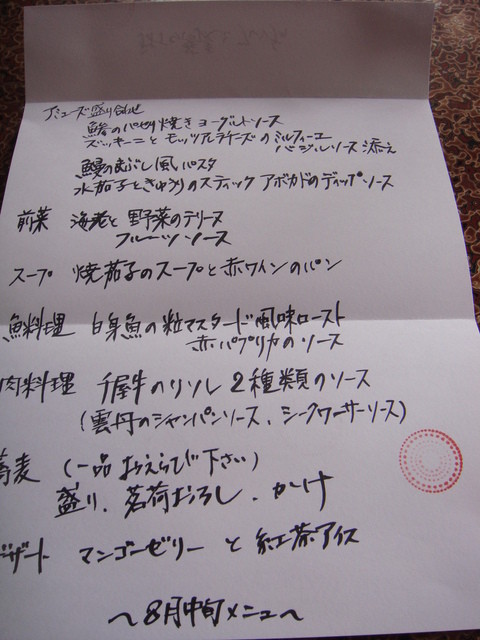 アミューズ盛り合せ
鯵のパセリ焼き ヨーグルトソース
ズッキーニとモッツァレラチーズのミルフィーユ
バジルソース添え
鰻のまぶし風パスタ
水茄子ときゅうりのスティック アボカドのディップソース
前菜 海老と野菜のテリーヌ
フルーツソース
スープ 焼茄子のスープと赤ワインのパン
魚料理 白身魚の粒マスタード風味ロースト
赤パプリカのソース
肉料理 千屋牛のリソレ 2種類のソース
(雲丹のシャンパンソース、シークワーサーソース)
蕎麦 (一品おえらび下さい)
盛り、茗荷おろし、かけ
デザート マンゴーゼリーと紅茶アイス
〜8月中旬メニュー〜